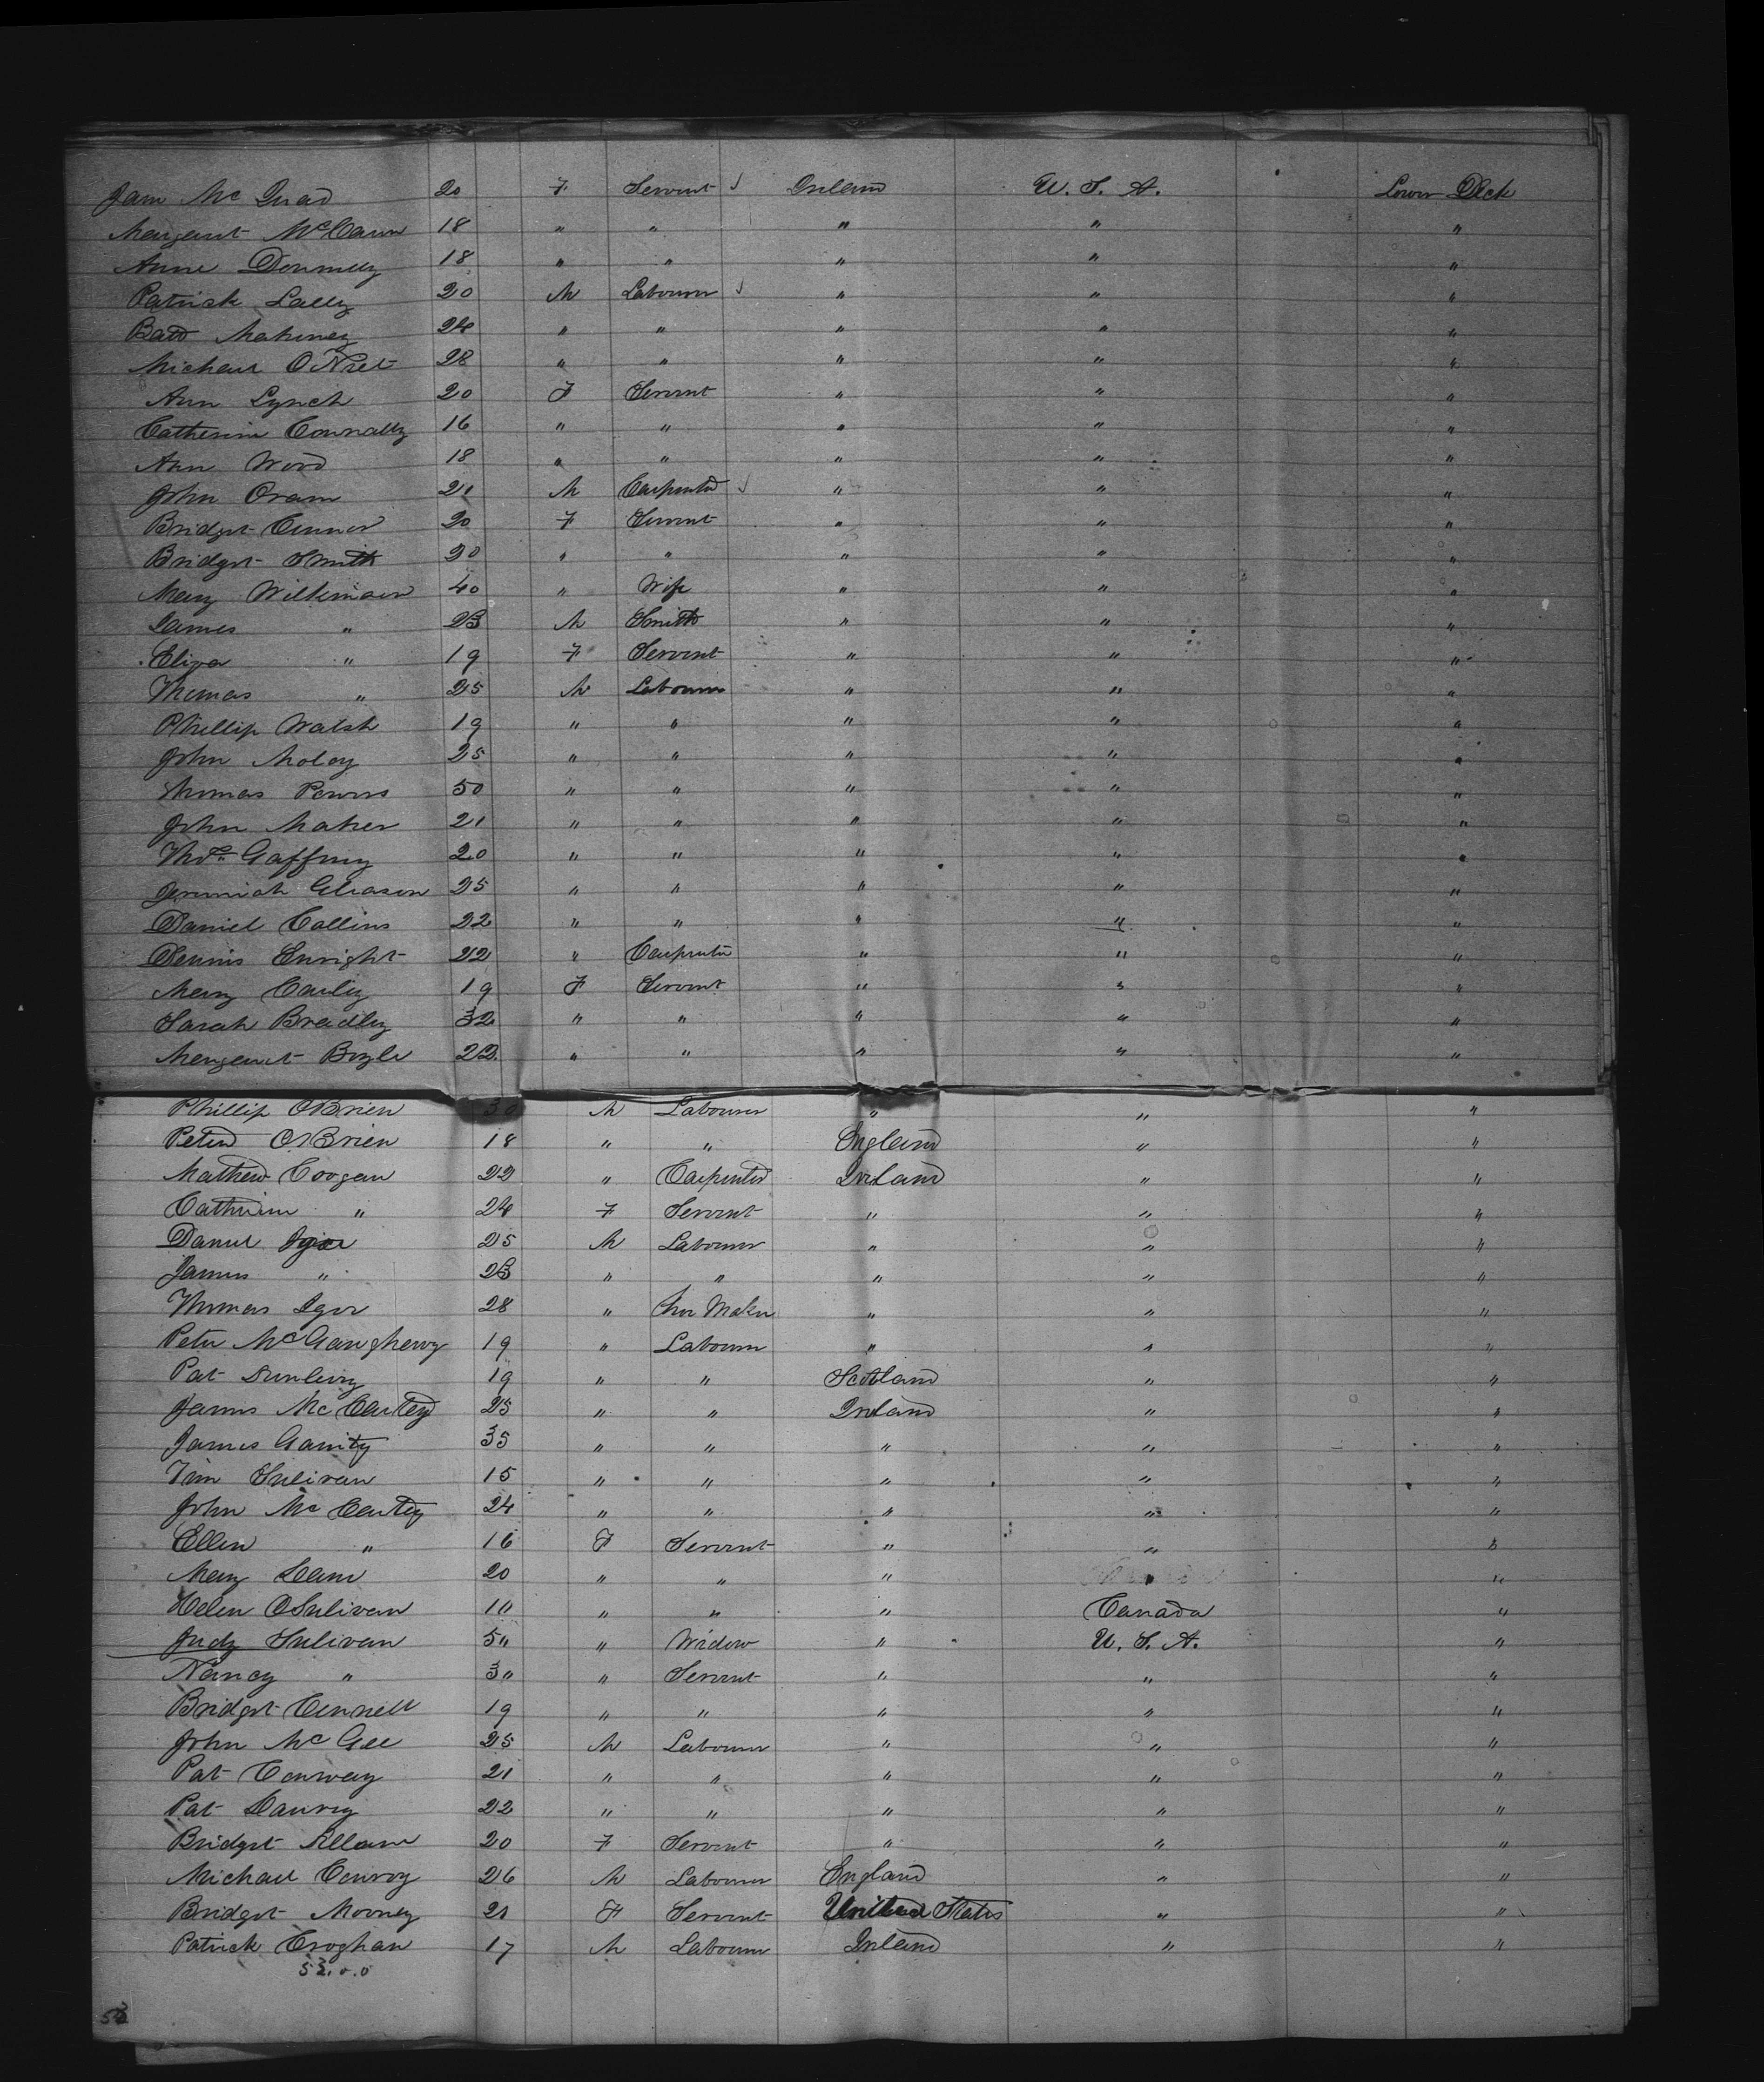 Jam Mc Quad 20 F Servant ✓ Ireland U. S. A. Lower Deck
Margaret McCann 18 " " " " "
Anne Donnelly 18 " " " " "
Patrick Lally 20 M Labourer ✓ " " "
Batt Mahoney 24 " " " " "
Michael O'Niel 28 " " " " "
Ann Lynch 20 F Servant " " "
Catherine Connally 16 " " " " "
Ann Wood 18 " " " " "
John Oram 21 M Carpenter ✓ " " "
Bridget Connor 20 F Servant " " "
Bridget Smith 20 " " " " "
Mary Wilkinson 40 " Wife " " "
James " 23 M Smith " " "
Eliza " 19 F Servant " " "
Thomas " 25 M Labourer " " "
Phillip Walsh 19 " " " " "
John Moloy 25 " " " " "
Thomas Powers 50 " " " " "
John Maher 21 " " " " "
Thos Gaffney 20 " " " " "
Jeremiah Gleason 25 " " " " "
Daniel Collins 22 " " " " "
Dennis Enright 22 " Carpenter " " "
Mary Carley 19 F Servant " " "
Sarah Bradley 32 " " " " "
Margaret Boyle 22 " " " " "
Phillip OBrien 30 M Labourer " " "
Peter OBrien 18 " " England " "
Mathew Coogan 22 " Carpenter Ireland " "
Catherine " 24 F Servant " " "
Daniel Igor 25 M Labourer " " "
James " 23 " " " " "
Thomas Igor 28 " Shoe Maker " " "
Peter McGaugherry 19 " Labourer " " "
Pat Dunlevy 19 " " Scotland " "
James McCartey 25 " " Ireland " "
James Garrity 35 " " " " "
Tim Sulivan 15 " " " " "
John McCartey 24 " " " " "
Ellen " 16 F Servant " " "
Mary Lane 20 " " " " "
Helen OSulivan 10 " " " Canada "
Judy Sulivan 50 " Widow " U. S. A. "
Nancy " 30 " Servant " " "
Bridget Connell 19 " " " " "
John McGee 25 M Labourer " " "
Pat Conway 21 " " " " "
Pat 22 " " " " "
Bridget 20 F Servant " " "
Michael Conroy 26 M Labourer England " "
Bridget Mooney 21 F Servant United States " "
Patrick Croghan 17 M Labourer Ireland " "
53.0.0
53